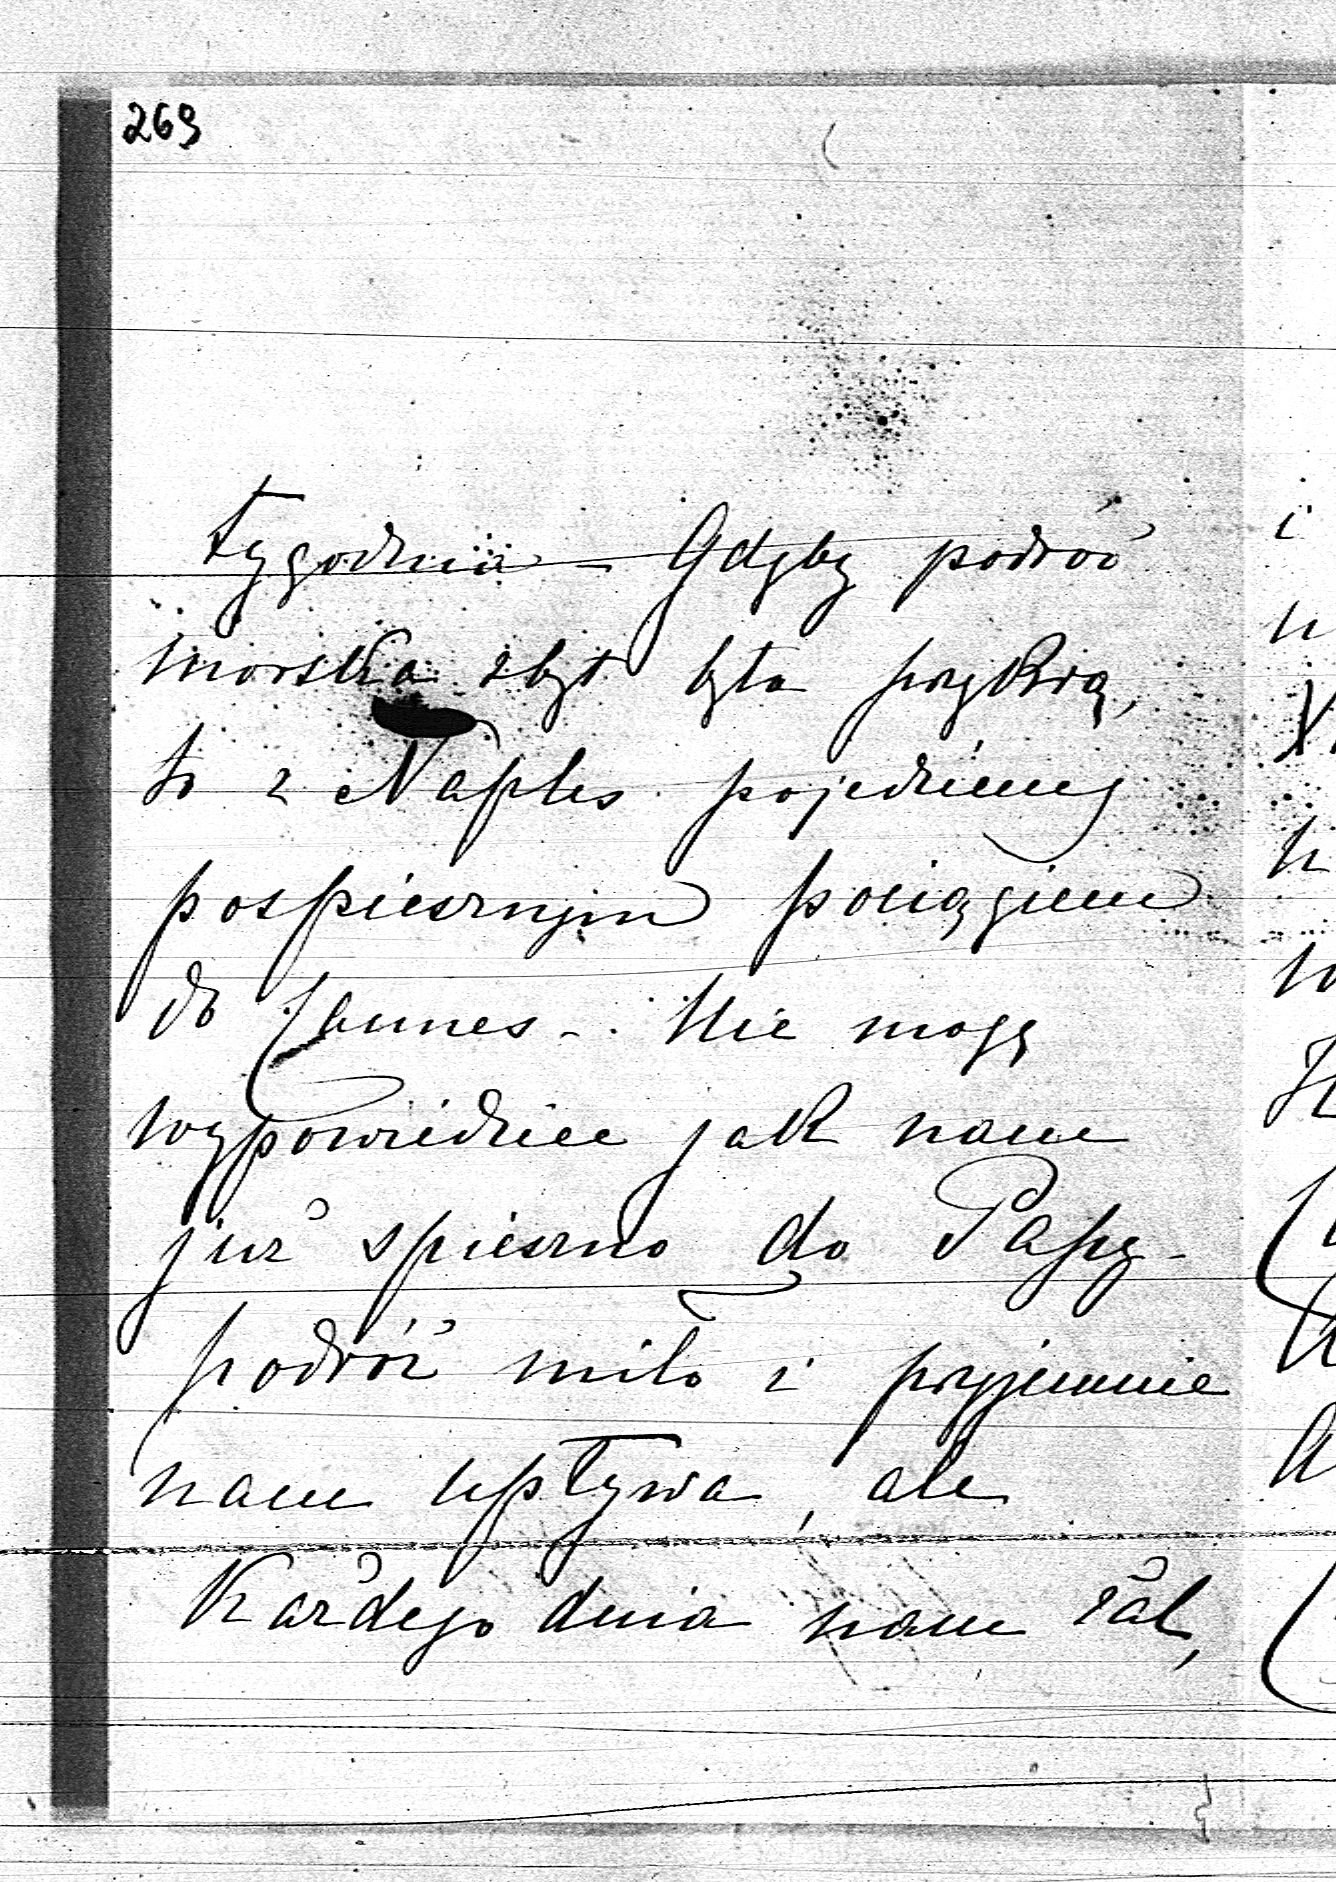 269
tygodnia – Gdyby podróż
morska zbyt była przykrą,
to z Naples pojedziemy
pospiesznym pociągiem
do Cannes – Nie mogę
wypowiedzieć jak nam
już spieszno do Papy –
podróż miło i przyjemnie
nam upływa, ale
każdego dnia nam żal,